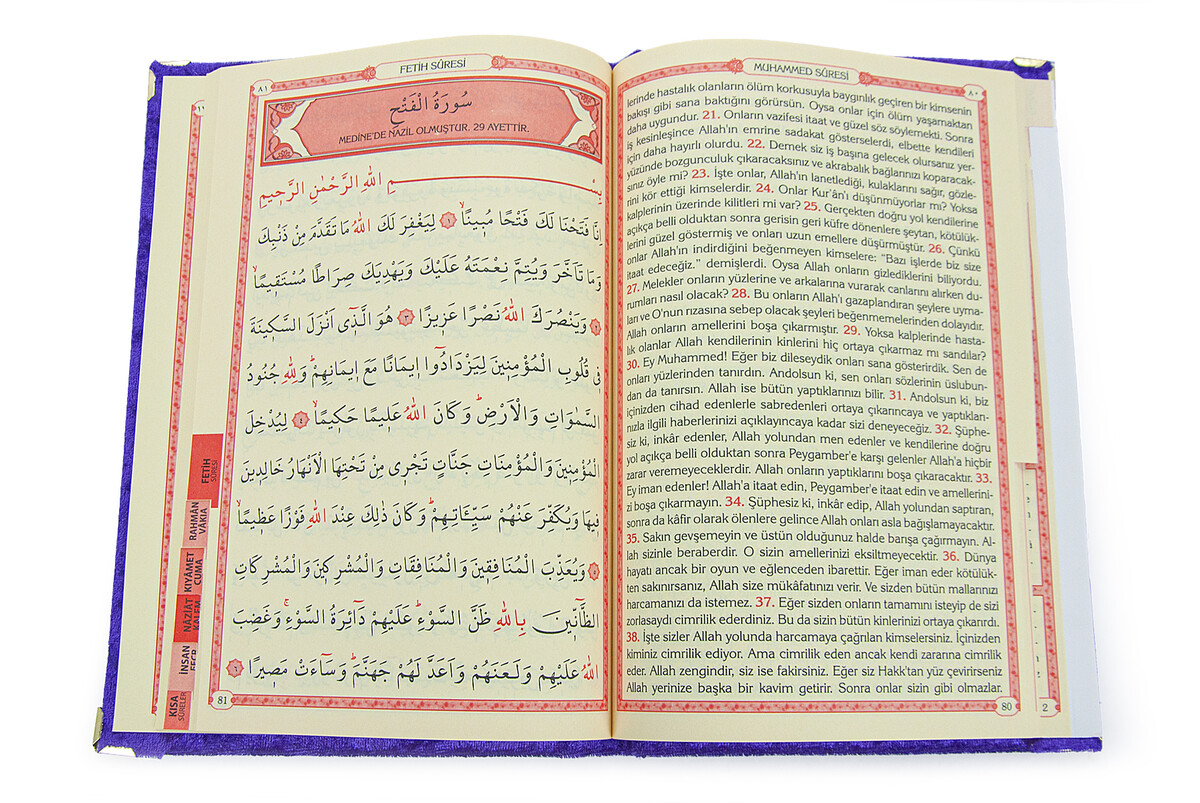 MUHAMMED SÛRESİ
٨٠
lerinde hastalık olanların ölüm korkusuyla baygınlık geçiren bir kimsenin
bakışı gibi sana baktığını görürsün. Oysa onlar için ölüm yaşamaktan
daha uygundur. 21. Onların vazifesi itaat ve güzel söz söylemekti. Sonra
iş kesinleşince Allah'ın emrine sadakat gösterselerdi, elbette kendileri
için daha hayırlı olurdu. 22. Demek siz iş başına gelecek olursanız yer-
yüzünde bozgunculuk çıkaracaksınız ve akrabalık bağlarınızı koparacak-
sınız öyle mi? 23. İşte onlar, Allah'ın lanetlediği, kulaklarını sağır, gözle-
rini kör ettiği kimselerdir. 24. Onlar Kur'ân'ı düşünmüyorlar mı? Yoksa
kalplerinin üzerinde kilitleri mi var? 25. Gerçekten doğru yol kendilerine
açıkça belli olduktan sonra gerisin geri küfre dönenlere şeytan, kötülük-
lerini güzel göstermiş ve onları uzun emellere düşürmüştür. 26. Çünkü
onlar Allah'ın indirdiğini beğenmeyen kimselere: "Bazı işlerde biz size
itaat edeceğiz." demişlerdi. Oysa Allah onların gizlediklerini biliyordu.
27. Melekler onların yüzlerine ve arkalarına vurarak canlarını alırken du-
rumları nasıl olacak? 28. Bu onların Allah'ı gazaplandıran şeylere uyma-
ları ve O'nun rızasına sebep olacak şeyleri beğenmemelerinden dolayıdır.
Allah onların amellerini boşa çıkarmıştır. 29. Yoksa kalplerinde hasta-
lık olanlar Allah kendilerinin kinlerini hiç ortaya çıkarmaz mı sandılar?
30. Ey Muhammed! Eğer biz dileseydik onları sana gösterirdik. Sen de
onları yüzlerinden tanırdın. Andolsun ki, sen onları sözlerinin üslubun-
dan da tanırsın. Allah ise bütün yaptıklarınızı bilir. 31. Andolsun ki, biz
içinizden cihad edenlerle sabredenleri ortaya çıkarıncaya ve yaptıkları-
nızla ilgili haberlerinizi açıklayıncaya kadar sizi deneyeceğiz. 32. Şüphe-
siz ki, inkâr edenler, Allah yolundan men edenler ve kendilerine doğru
yol açıkça belli olduktan sonra Peygamber'e karşı gelenler Allah'a hiçbir
zarar veremeyeceklerdir. Allah onların yaptıklarını boşa çıkaracaktır. 33.
Ey iman edenler! Allah'a itaat edin, Peygamber'e itaat edin ve amellerini-
zi boşa çıkarmayın. 34. Şüphesiz ki, inkâr edip, Allah yolundan saptıran,
sonra da kâfir olarak ölenlere gelince Allah onları asla bağışlamayacaktır.
35. Sakın gevşemeyin ve üstün olduğunuz halde barışa çağırmayın. Al-
lah sizinle beraberdir. O sizin amellerinizi eksiltmeyecektir. 36. Dünya
hayatı ancak bir oyun ve eğlenceden ibarettir. Eğer iman eder kötülük-
ten sakınırsanız, Allah size mükâfatınızı verir. Ve sizden bütün mallarınızı
harcamanızı da istemez. 37. Eğer sizden onların tamamını isteyip de sizi
zorlasaydı cimrilik ederdiniz. Bu da sizin bütün kinlerinizi ortaya çıkarırdı.
38. İşte sizler Allah yolunda harcamaya çağrılan kimselersiniz. İçinizden
kiminiz cimrilik ediyor. Ama cimrilik eden ancak kendi zararına cimrilik
eder. Allah zengindir, siz ise fakirsiniz. Eğer siz Hakk'tan yüz çevirirseniz
Allah yerinize başka bir kavim getirir. Sonra onlar sizin gibi olmazlar.
80
2
FETİH SÛRESİ
٨١
سُورَةُ الْفَتْحِ
MEDİNE'DE NAZİL OLMUŞTUR. 29 AYETTİR.
بِسْمِ اللهِ الرَّحْمٰنِ الرَّحِيمِ
اِنَّا فَتَحْنَا لَكَ فَتْحًا مُبِينًاۙ ١ لِيَغْفِرَ لَكَ اللهُ مَا تَقَدَّمَ مِنْ ذَنْبِكَ
وَمَا تَاَخَّرَ وَيُتِمَّ نِعْمَتَهُ عَلَيْكَ وَيَهْدِيَكَ صِرَاطًا مُسْتَقِيمًاۙ
٢ وَيَنْصُرَكَ اللهُ نَصْرًا عَزِيزًا ٣ هُوَ الَّذ۪ٓى اَنْزَلَ السَّكِينَةَ
فِى قُلُوبِ الْمُؤْمِنِينَ لِيَزْدَادُٓوا اِيمَانًا مَعَ اِيمَانِهِمْۜ وَلِلهِ جُنُودُ
السَّمٰوَاتِ وَالْاَرْضِۜ وَكَانَ اللهُ عَلِيمًا حَكِيمًاۙ ٤ لِيُدْخِلَ
الْمُؤْمِنِينَ وَالْمُؤْمِنَاتِ جَنَّاتٍ تَجْرِى مِنْ تَحْتِهَا الْاَنْهَارُ خَالِدِينَ
فِيهَا وَيُكَفِّرَ عَنْهُمْ سَيِّـَٔاتِهِمْۜ وَكَانَ ذٰلِكَ عِنْدَ اللهِ فَوْزًا عَظِيمًاۙ
٥ وَيُعَذِّبَ الْمُنَافِقِينَ وَالْمُنَافِقَاتِ وَالْمُشْرِكِينَ وَالْمُشْرِكَاتِ
الظَّٓانِّينَ بِاللهِ ظَنَّ السَّوْءِۜ عَلَيْهِمْ دَٓائِرَةُ السَّوْءِۚ وَغَضِبَ
اللهُ عَلَيْهِمْ وَلَعَنَهُمْ وَاَعَدَّ لَهُمْ جَهَنَّمَۜ وَسَٓاءَتْ مَصِيرًا ٦
81
FETİH
SÛRESİ
RAHMÂN
VÂKIA
KIYÂMET
CUMA
NÂZİÂT
KALEM
İNSAN
FECR
KISA
SÛRELER